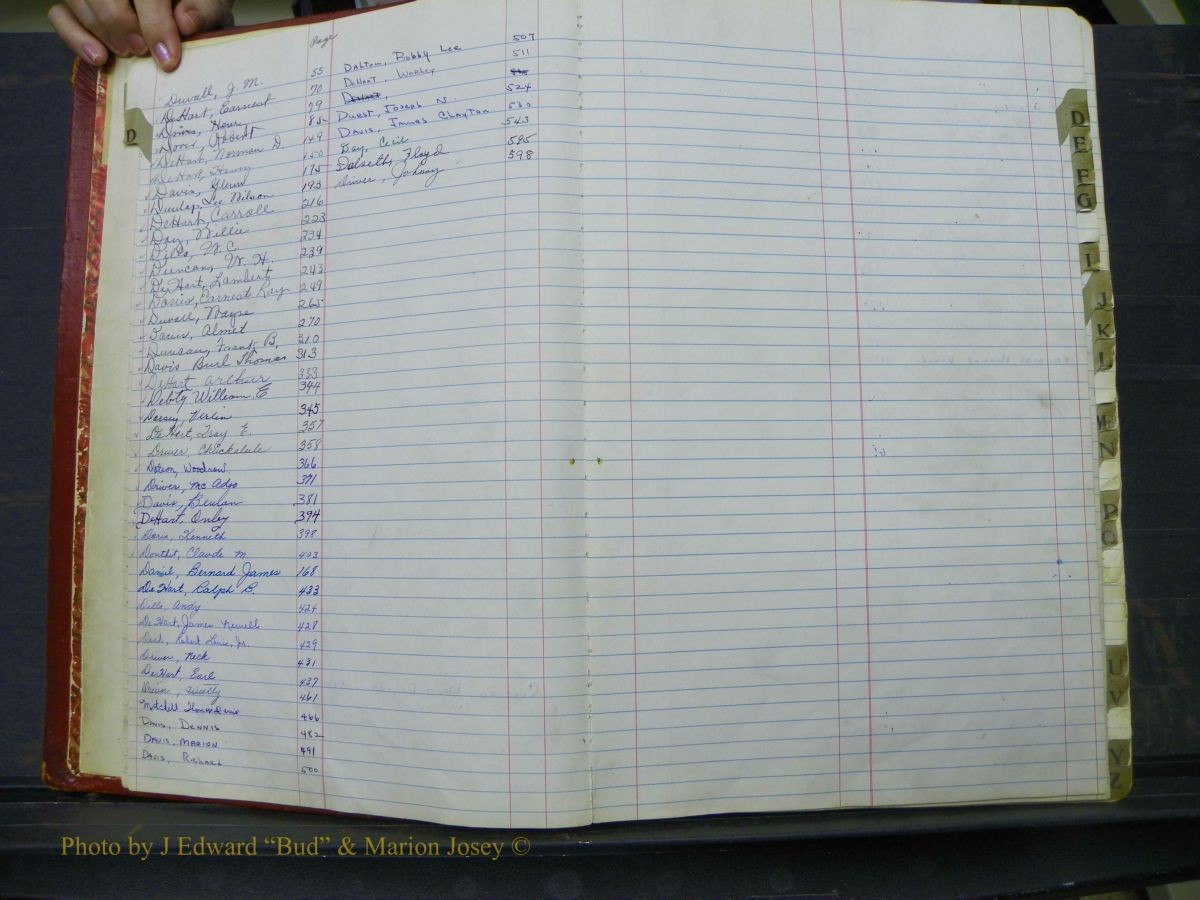 Page
Duvall, J. M. 55
DeHart, Earnest 70
Davis, Henry 79
Robert 82
DeHart, Norman D. 149
DeHart, Henry 150
Davis, Glenn 175
Dunlap, Lee Wilson 193
DeHart, Carroll 216
Day, Willie 223
Dills, W. C. 234
Duncan, W. H. 239
DeHart, Lambert 243
Davis, Earnest Ray 249
Duvall, Wayne 265
Davis, Almet 270
Duncan, Frank B. 310
Davis Burl Thomas 313
DeHart Arthur 333
Debty William E 344
Dorsey, Verlin 345
DeHart, Troy E. 357
Driver, 358
Dotson, Woodrow 366
Driver, Mc Adoo 371
Davis, Beulan 381
DeHart, Onley 394
Davis, Kenneth 398
Douthit, Claude M. 403
Daniel, Bernard James 168
DeHart, Ralph B. 433
Dills, Andy 424
DeHart, James Newell 428
Robert Louis, Jr. 429
Driver, Neck 431
DeHart, Earl 437
Willy 461
Mitchell
Davis, Dennis 466
Davis, Marion 482
Davis, Richard 491
500
Dalton, Bobby Lee 507
DeHart, Worley 511
DeHart,
Durst, Joseph N. 524
Davis, James Clayton 530
Day, Cecil 543
Dalseth, Floyd 595
Driver, Johnny 598
D
D
E
F
G
I
J
K
L
M
N
P
Q
U
V
Y
Z
Photo by J Edward “Bud” & Marion Josey ©